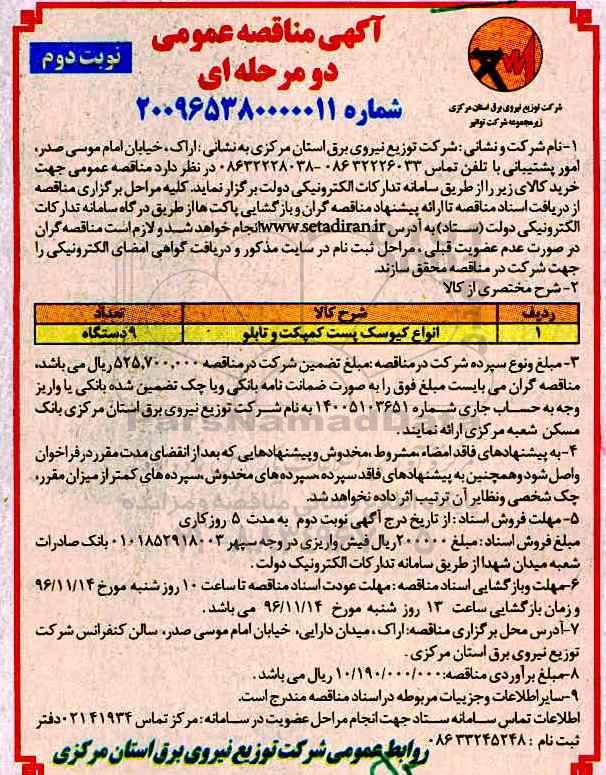 آگهی مناقصه عمومی
دو مرحله ای
نوبت دوم
شماره ۲۰۰۹۶۵۳۸۰۰۰۰۰۱۱
شرکت توزیع نیروی برق استان مرکزی
زیرمجموعه شرکت توانیر
۱-نام شرکت و نشانی : شرکت توزیع نیروی برق استان مرکزی به نشانی : اراک ، خیابان امام موسی صدر،
امور پشتیبانی با تلفن تماس ۳۲۲۲۶۰۳۳ ۰۸۶ -۰۸۶۳۲۲۲۸۰۳۸ در نظر دارد مناقصه عمومی جهت
خرید کالای زیر را از طریق سامانه تدارکات الکترونیکی دولت برگزار نماید. کلیه مراحل برگزاری مناقصه
از دریافت اسناد مناقصه تا ارائه پیشنهاد مناقصه گران و بازگشایی پاکت ها از طریق درگاه سامانه تدارکات
الکترونیکی دولت (ستاد) به آدرس www.setadiran.ir انجام خواهد شد و لازم است مناقصه گران
در صورت عدم عضویت قبلی ، مراحل ثبت نام در سایت مذکور و دریافت گواهی امضای الکترونیکی را
جهت شرکت در مناقصه محقق سازند.
۲-شرح مختصری از کالا
ردیف شرح کالا تعداد
۱ انواع کیوسک پست کمپکت و تابلو ۹ دستگاه
۳- مبلغ ونوع سپرده شرکت در مناقصه :مبلغ تضمین شرکت در مناقصه ۵۲۵,۷۰۰,۰۰۰ ریال می باشد،
مناقصه گران می بایست مبلغ فوق را به صورت ضمانت نامه بانکی ویا چک تضمین شده بانکی یا واریز
وجه به حساب جاری شماره ۱۴۰۰۵۱۰۳۶۵۱ به نام شرکت توزیع نیروی برق استان مرکزی بانک
مسکن شعبه مرکزی ارائه نمایند .
۴-به پیشنهادهای فاقد امضاء ،مشروط ،مخدوش و پیشنهادهایی که بعد از انقضای مدت مقرر در فراخوان
واصل شود و همچنین به پیشنهادهای فاقد سپرده ،سپرده های مخدوش ،سپرده های کمتر از میزان مقرر،
چک شخصی ونظایر آن ترتیب اثر داده نخواهد شد.
۵- مهلت فروش اسناد : از تاریخ درج آگهی نوبت دوم به مدت ۵ روز کاری
مبلغ فروش اسناد : مبلغ ۲۰۰۰۰۰ ریال فیش واریزی در وجه سپهر ۰۱۰۱۸۵۲۹۱۸۰۰۳ بانک صادرات
شعبه میدان شهدا از طریق سامانه تدارکات الکترونیک دولت .
۶-مهلت وبازگشایی اسناد مناقصه : مهلت عودت اسناد مناقصه تا ساعت ۱۰ روز شنبه مورخ ۹۶/۱۱/۱۴
و زمان بازگشایی ساعت ۱۳ روز شنبه مورخ ۹۶/۱۱/۱۴ می باشد .
۷-آدرس محل برگزاری مناقصه: اراک ، میدان دارایی، خیابان امام موسی صدر، سالن کنفرانس شرکت
توزیع نیروی برق استان مرکزی .
۸-مبلغ برآوردی مناقصه: ۱۰/۱۹۰/۰۰۰/۰۰۰ ریال می باشد .
۹-سایر اطلاعات وجزییات مربوطه در اسناد مناقصه مندرج است.
اطلاعات تماس سامانه ستاد جهت انجام مراحل عضویت در سامانه : مرکز تماس ۰۲۱۴۱۹۳۴ دفتر
ثبت نام : ۳۳۲۴۵۲۴۸ ۰۸۶
روابط عمومی شرکت توزیع نیروی برق استان مرکزی